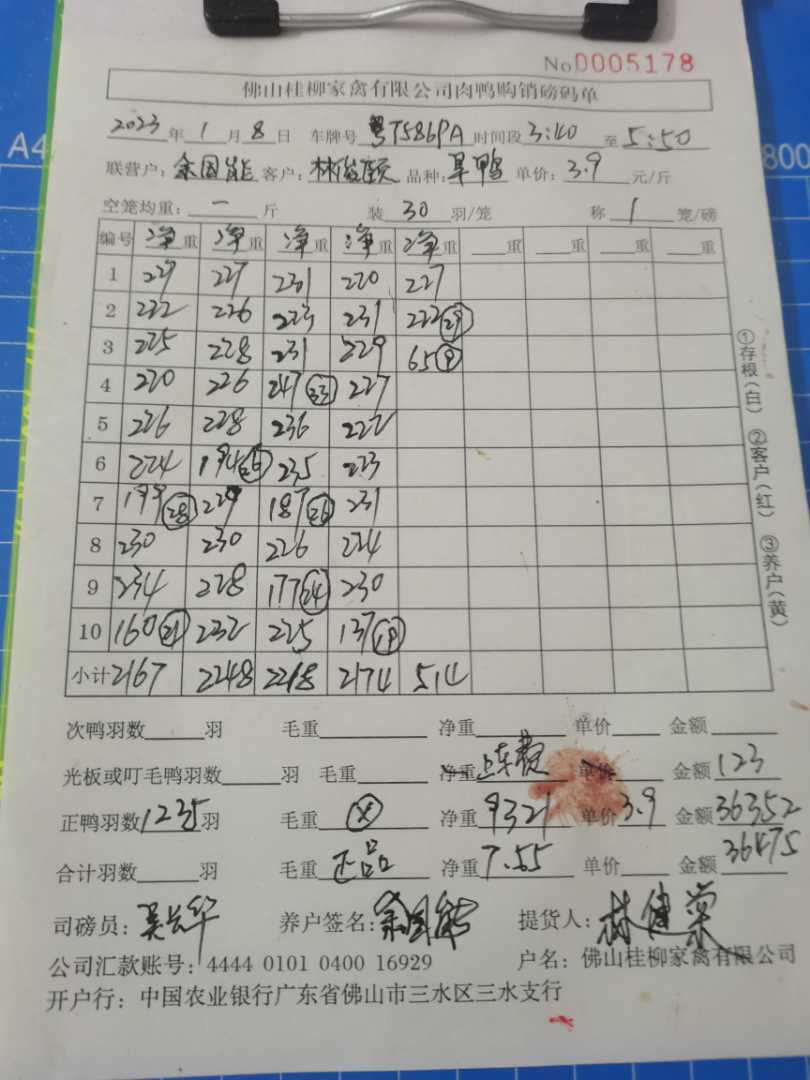 No 0005178
佛山桂柳家禽有限公司肉鸭购销磅码单
2023年1月8日 车牌号 粤T586PA 时间段 3:40 至 5:50
联营户: 余国能 客户: 林俊颐 品种: 旱鸭 单价: 3.9 元/斤
空笼均重: 一 斤 装 30 羽/笼 称 1 笼/磅
编号 净重 净重 净重 净重 净重 重 重 重 重
1 227 231 220 227
2 222 226 223 231 222 (29)
3 225 228 231 229 65 (9)
4 220 226 247 (33) 227
5 226 228 236 222
6 224 194 235 223
7 199 (28) 229 187 (26) 231
8 230 230 226 224
9 234 228 177 (24) 230
10 160 (21) 232 225 137 (19)
小计 2167 2248 2218 2174 514
次鸭羽数 羽 毛重 净重 单价 金额
光板或叮毛鸭羽数 羽 毛重 净重 上车费 单价 金额 123
正鸭羽数 1235 羽 毛重 净重 9321 单价 3.9 金额 36352
合计羽数 羽 毛重 正品 净重 7.55 单价 金额 36475
司磅员: 养户签名: 余国能 提货人: 林健荣
公司汇款账号: 4444 0101 0400 16929 户名: 佛山桂柳家禽有限公司
开户行: 中国农业银行广东省佛山市三水区三水支行
①存根(白) ②客户(红) ③养户(黄)
A4
800